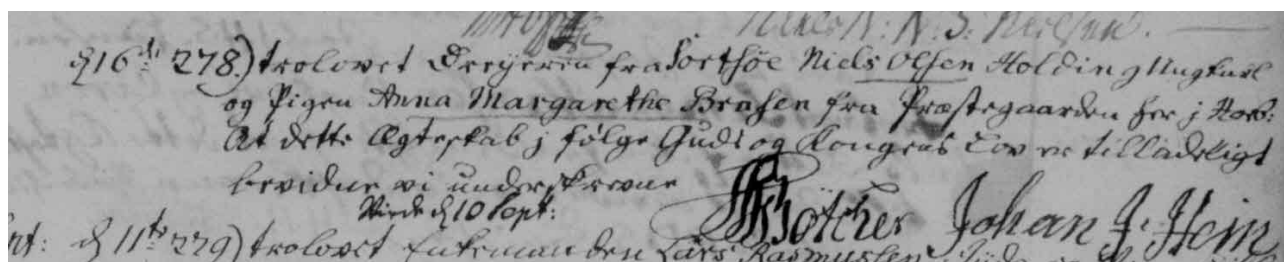 d 16te 278.) trolovet Dreyeren fra Sortsøe Niels Olsen Holding Ungkarl
og Pigen Anna Margarethe Brasen fra Præstegaarden her j
At dette Ægteskab j følge Guds og Kongens Lov er tilladeligt
bevidne vi underskrevne
Viede d 10 Sept: Bötcher Johan J. Hein
d 11te 279) trolovet Enkemanden Lars Rasmussen